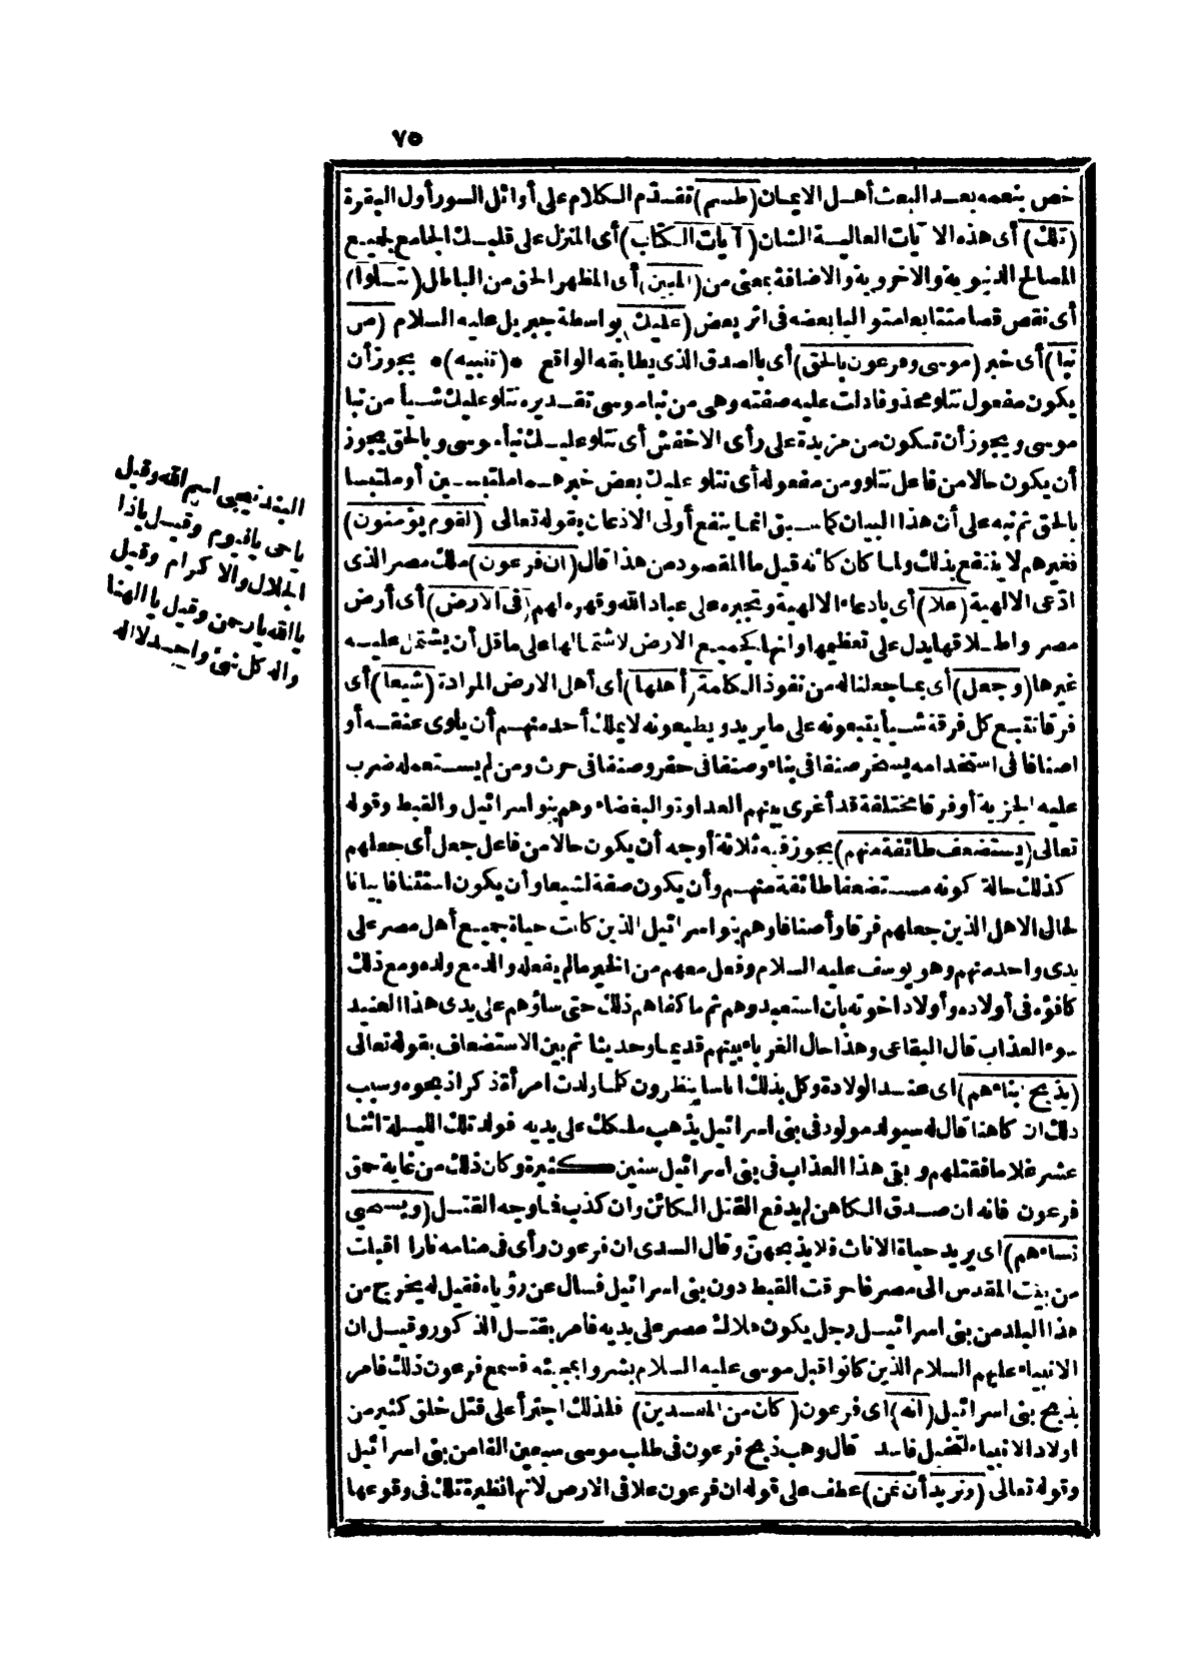 ٧٥
خص بنعمه بعد البعث أهل الايمان (طسم) تقدّم الكلام على أوائل السور أول البقرة
(تلك) أى هذه الآيات العالية الشان (آيات الكتاب) أى المنزل على قلبك الجامع لجميع
المصالح الدنيوية والاخروية والاضافة بمعنى من (المبين) أى المظهر الحق من الباطل (نتلوا)
أى نقص قصا متتابعا متواليا بعضه فى اثر بعض (عليك) بواسطة جبريل عليه السلام (من
نبا) أى خبر (موسى وفرعون بالحق) أى بالصدق الذى يطابقه الواقع *(تنبيه)* يجوز أن
يكون مفعول نتلو محذوفا دلت عليه صفته وهى من نبا موسى تقديره نتلو عليك شيأ من نبا
موسى ويجوز أن تكون من مزيدة على رأى الاخفش أى نتلو عليك نبأ موسى وبالحق يجوز
أن يكون حالا من فاعل نتلو ومن مفعوله أى نتلو عليك بعض خبرهما ملتبسين أو ملتبسا
بالحق ثم نبه على أن هذا البيان كما سبق انما ينفع أولى الاذعان بقوله تعالى (لقوم يؤمنون)
فغيرهم لا ينتفع بذلك ولما كان كأنه قيل ما المقصود من هذا قال (ان فرعون) ملك مصر الذى
ادّعى الالهية (علا) أى بادعاء الالهية وتجبره على عباد الله وقهره لهم (فى الارض) أى أرض
مصر واطلاقها يدل على تعظيمها وانها كجميع الارض لاشتمالها على ما قل أن يشتمل عليه
غيرها (وجعل) أى بما جعلنا له من نفوذ الكلمة (أهلها) أى أهل الارض المرادة (شيعا) أى
فرقا تتبع كل فرقة شيأ يتبعونه على ما يريد ويطيعونه لا يملك أحد منهم أن يلوى عنقه أو
اصنافا فى استخدامه يسخر صنفا فى بناء وصنفا فى حفر وصنفا فى حرث ومن لم يستعمله ضرب
عليه الجزية أو فرقا مختلفة قد أغرى بينهم العداوة والبغضاء وهم بنو اسرائيل والقبط وقوله
تعالى (يستضعف طائفة منهم) يجوز فيه ثلاثة أوجه أن يكون حالا من فاعل جعل أى جعلهم
كذلك حالة كونه مستضعفا طائفة منهم وأن يكون صفة لشيعا وأن يكون استئنافا بيانا
لحال الاهل الذين جعلهم فرقا وأصنافا وهم بنو اسرائيل الذين كانت حياة جميع أهل مصر على
يدى واحد منهم وهو يوسف عليه السلام وفعل معهم من الخير مالم يفعله والد مع ولده ومع ذلك
كافؤه فى أولاده وأولاد اخوته بان استعبدوهم ثم ما كفاهم ذلك حتى ساؤهم على يدى هذا العنيد
سوء العذاب قال البقاعى وهذا حال الغرباء بينهم قديما وحديثا ثم بين الاستضعاف بقوله تعالى
(يذبح أبناءهم) اى عند الولادة وكل بذلك اناسا ينظرون كلما ولدت امرأة ذكرا ذبحوه وسبب
ذلك ان كاهنا قال له سيولد مولود فى بنى اسرائيل يذهب ملكك على يديه فولد تلك الليلة اثنا
عشر غلاما فقتلهم وبقى هذا العذاب فى بنى اسرائيل سنين كثيرة وكان ذلك من غاية حمق
فرعون فانه ان صدق الكاهن لم يدفع القتل الكائن وان كذب فما وجه القتل (ويستحيى
نساءهم) اى يريد حياة الاناث فلا يذبحهنّ وقال السدى ان فرعون رأى فى منامه نارا اقبلت
من بيت المقدس الى مصر فاحرقت القبط دون بنى اسرائيل فسال عن رؤياه فقيل له يخرج من
هذا البلد من بنى اسرائيل رجل يكون هلاك مصر على يديه فأمر بقتل الذكور وقيل ان
الانبياء عليهم السلام الذين كانوا قبل موسى عليه السلام بشروا بمجيئه فسمع فرعون ذلك فامر
بذبح بنى اسرائيل (انه) اى فرعون (كان من المفسدين) فلذلك اجترأ على قتل خلق كثير من
اولاد الانبياء لتخيل فاسد قال وهب ذبح فرعون فى طلب موسى سبعين الفا من بنى اسرائيل
وقوله تعالى (ونريد أن نمن) عطف على قوله ان فرعون علا فى الارض لانها نظيرة تلك فى وقوعها
اليند نعيى اسم الله وقيل
يا حى يا قيوم وقيل يا ذا
الجلال والاكرام وقيل
يا الله يا رحمن وقيل يا الهنا
واله كل شئ واحد لا اله